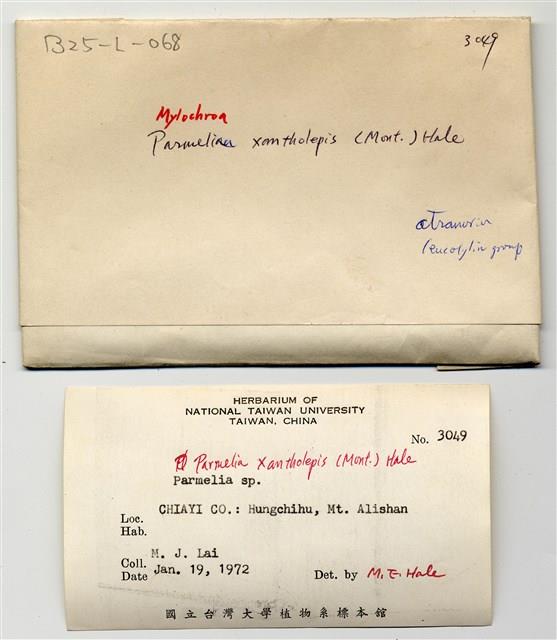 B25-L-068
3049
Mylochroa
Parmelia xantholepis (Mont.) Hale
atranorin
leucotylin group
HERBARIUM OF
NATIONAL TAIWAN UNIVERSITY
TAIWAN, CHINA
No. 3049
Parmelia xantholepis (Mont.) Hale
Parmelia sp.
CHIAYI CO.: Hungchihu, Mt. Alishan
Loc.
Hab.
Coll. M. J. Lai
Date Jan. 19, 1972
Det. by M. E. Hale
國立台灣大學植物系標本館